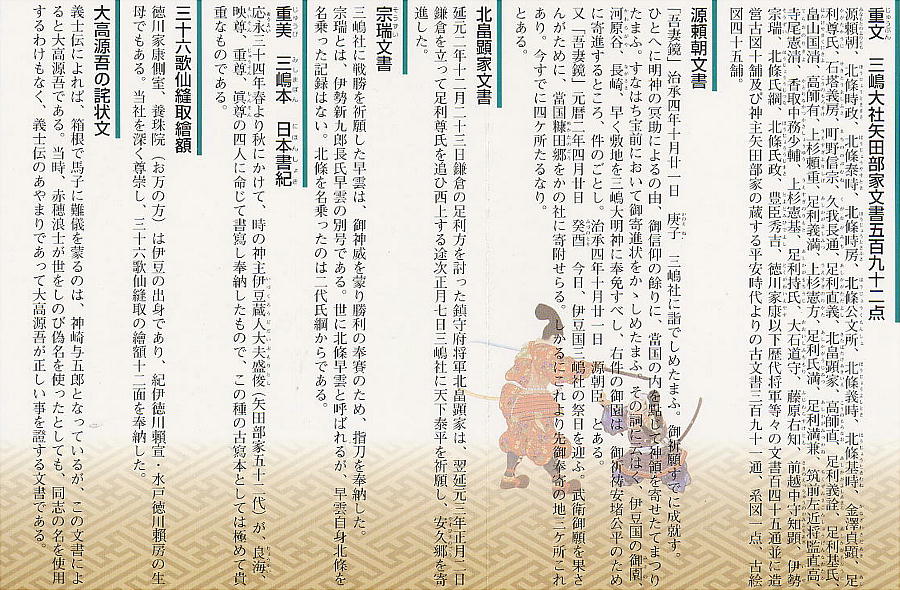 重文　三嶋大社矢田部家文書五百九十二点
源頼朝、北條時政、北條泰時、北條時房、北條公文所、北條義時、北條基時、金澤貞顕、足
利尊氏、石塔義房、町野信宗、久我長通、足利直義、北畠顕家、高師直、足利義詮、足利基氏、
畠山国清、高師有、上杉頼重、足利義満、上杉憲方、足利氏満、足利満兼、筑前左近将監直高、
寺尾憲清、香取中務少輔、上杉憲基、足利持氏、大石道守、藤原右知、前越中守知顕、伊勢
宗瑞、北條氏綱、北條氏政、豊臣秀吉、徳川家康以下歴代将軍等々の文書百四十五通並に造
営古図四十舗及び神主矢田部家の蔵する平安時代よりの古文書三百九十一通、系図一点、古絵
図四十五舗。
源頼朝文書
「吾妻鏡」治承四年十月廿一日　庚子　三嶋社に詣でしめたまふ。御祈願すでに成就す。
ひとへに明神の冥助によるの由、御信仰の餘りに、當国の内を點して神領を寄せたてまつり
たまふ。すなはち宝前において御寄進状をかゝしめたまふ。その詞に云はく、伊豆国の御園、
河原谷、長崎、早く敷地を三嶋大明神に奉免すべし、右件の御園は、御祈祷安堵公平のため
に寄進するところ、件のごとし。治承四年十月廿一日　源朝臣　とある。
又「吾妻鏡」元暦二年四月廿日　癸酉　今日、伊豆国三嶋社の祭日を迎ふ。武衛御願を果さ
んがために、當国糠田郷をかの社に寄附せらる。しかるにこれより先御奉寄の地三ケ所これ
あり。今すでに四ケ所たるなり。
とある。
北畠顕家文書
延元二年十二月二十三日鎌倉の足利方を討った鎮守府将軍北畠顕家は、翌延元三年正月二日
鎌倉を立って足利尊氏を追ひ西上する途次正月七日三嶋社に天下泰平を祈願し、安久郷を寄
進した。
宗瑞文書
三嶋社に戦勝を祈願した早雲は、御神威を蒙り勝利の奉賽のため、指刀を奉納した。
宗瑞とは、伊勢新九郎長氏早雲の別号である。世に北條早雲と呼ばれるが、早雲自身北條を
名乗った記録はない。北條を名乗ったのは二代氏綱からである。
重美　三嶋本　日本書紀
応永三十四年春より秋にかけて、時の神主伊豆蔵人大夫盛俊（矢田部家五十二代）が、良海、
映尊、重尊、眞尊の四人に命じて書寫し奉納したもので、この種の古寫本としては極めて貴
重なものである。
三十六歌仙縫取繪額
徳川家康側室、養珠院（お万の方）は伊豆の出身であり、紀伊徳川頼宣・水戸徳川頼房の生
母でもある。当社を深く尊崇し、三十六歌仙縫取の繪額十二面を奉納した。
大高源吾の詫状文
義士伝によれば、箱根で馬子に難儀を蒙るのは、神崎与五郎となっているが、この文書によ
ると大高源吾である。当時、赤穂浪士が世をしのび偽名を使ったとしても、同志の名を使用
するわけもなく、義士伝のあやまりであって大高源吾が正しい事を證する文書である。